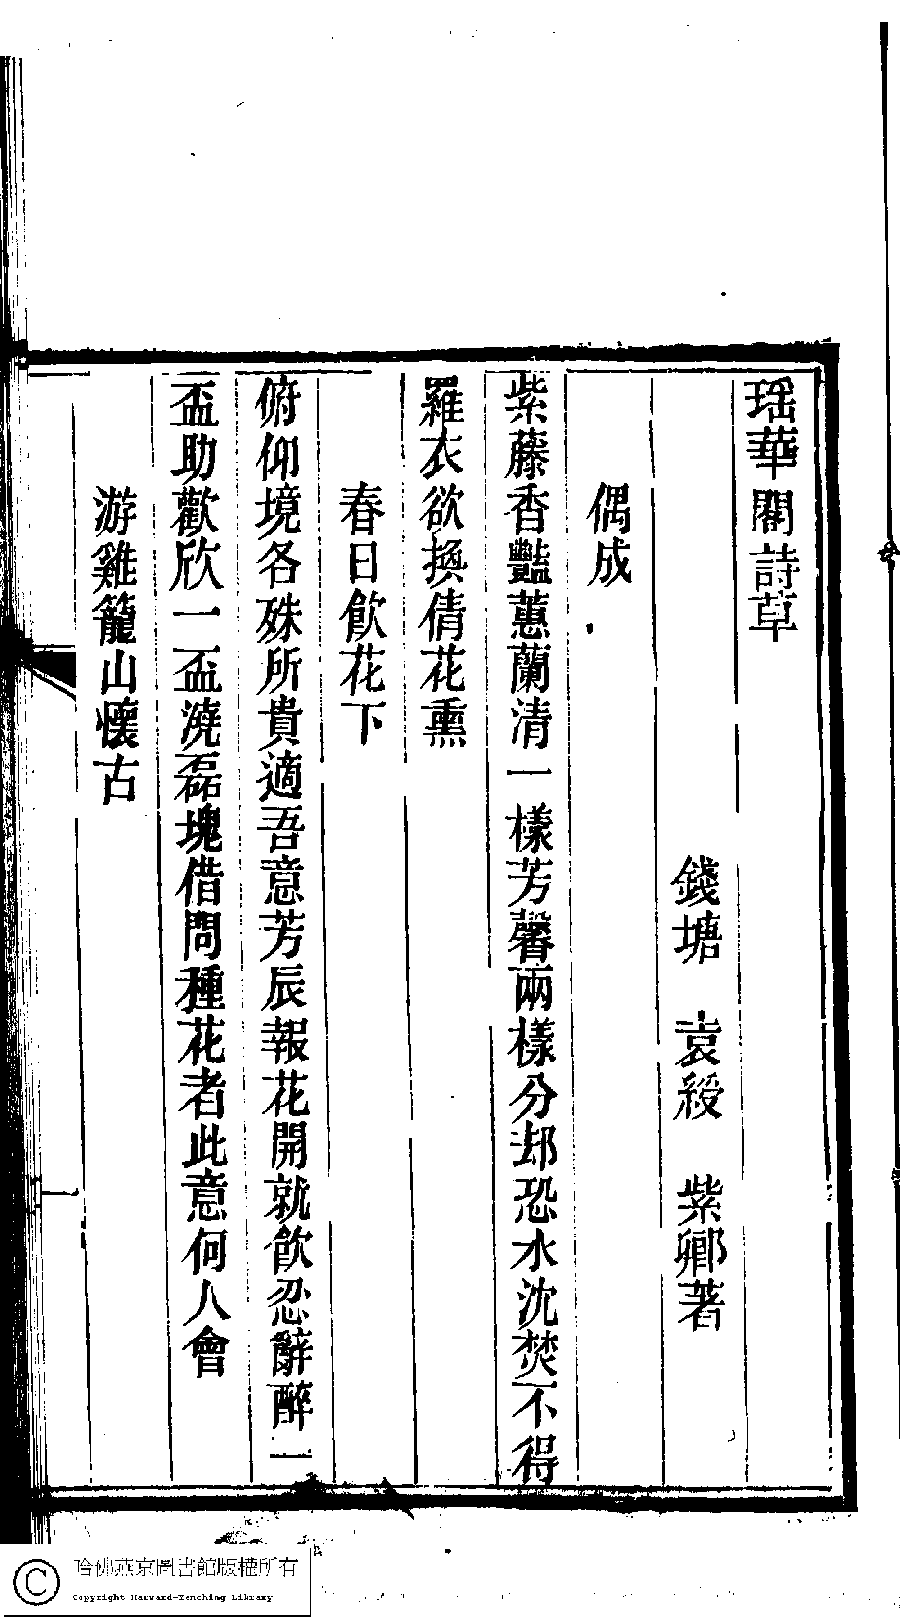 瑶華閣詩草
錢塘　袁綬　紫卿著
偶成
紫藤香豔蕙蘭清一樣芳馨兩樣分却恐水沈焚不得
羅衣欲換倩花熏
春日飲花下
俯仰境各殊所貴適吾意芳辰報花開就飲忍辭醉一
盃助歡欣一盃澆磊塊借問種花者此意何人會
游雞籠山懷古
哈佛燕京圖書館版權所有
Copyright Harvard-Yenching Library